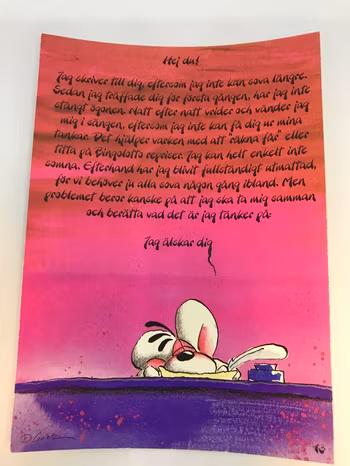 Hej du!
Jag skriver till dig, eftersom jag inte kan sova längre.
Sedan jag träffade dig för första gången, har jag inte
stängt ögonen. Natt efter natt vrider och vänder jag
mig i sängen, eftersom jag inte kan få dig ur mina
tankar. Det hjälper varken med att "räkna får" eller
titta på Bingolotto repriser. Jag kan helt enkelt inte
somna. Efterhand har jag blivit fullständigt utmattad,
för vi behöver ju alla sova någon gång ibland. Men
problemet beror kanske på att jag ska ta mig samman
och berätta vad det är jag tänker på:
Jag älskar dig